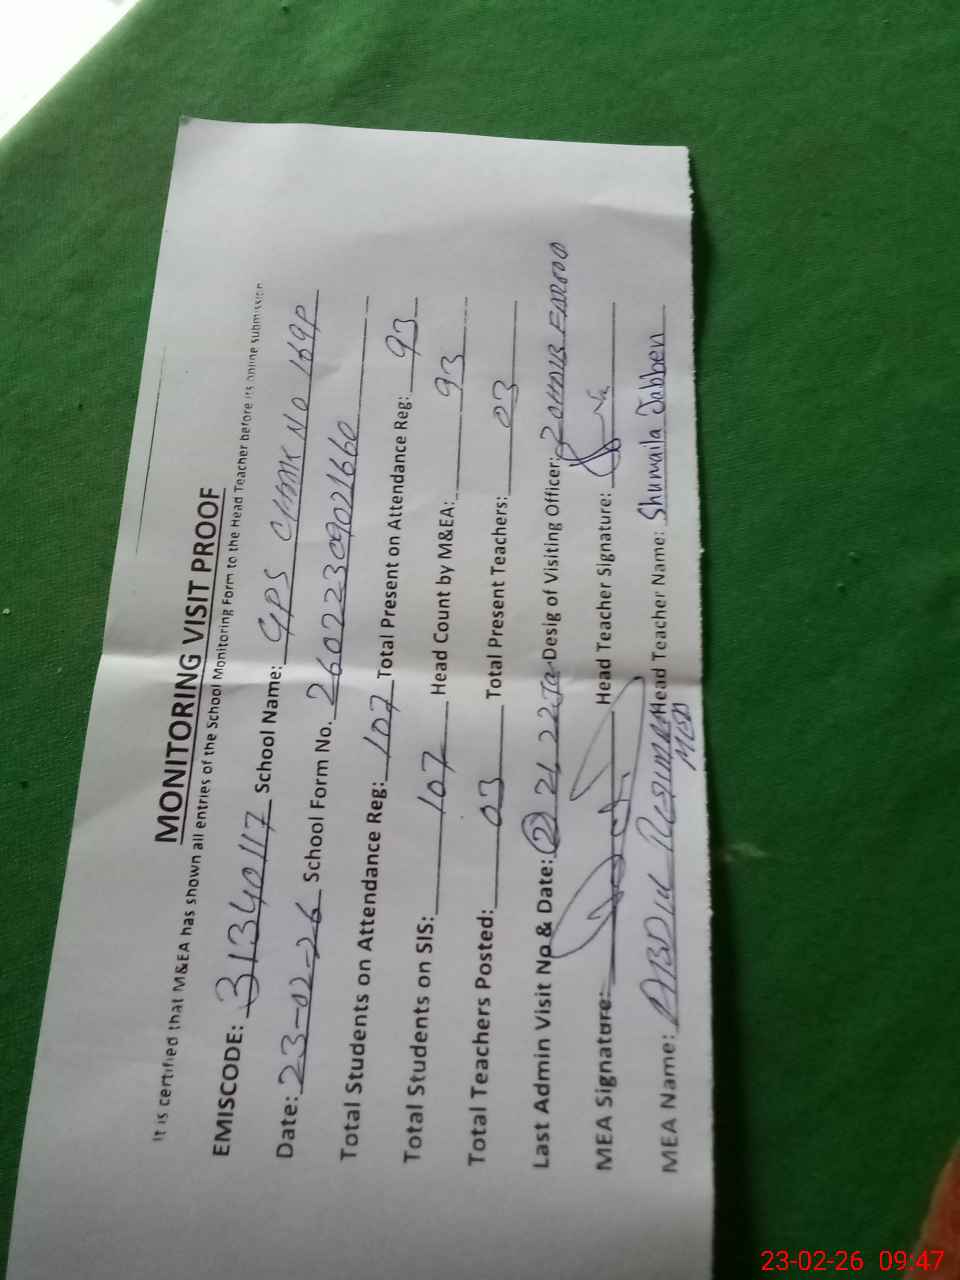 MONITORING VISIT PROOF
It is certified that M&EA has shown all entries of the School Monitoring Form to the Head Teacher before its online submission
EMISCODE: 31340117 School Name: GPS CHAK NO 169P
Date: 23-02-26 School Form No. 2602230902 1660
Total Students on Attendance Reg: 107 Total Present on Attendance Reg: 93
Total Students on SIS: 107 Head Count by M&EA: 93
Total Teachers Posted: 03 Total Present Teachers: 03
Last Admin Visit No & Date: (2) 21, 22 Ja Desig of Visiting Officer: ZOHAIB FAROOQ
MEA Signature: Head Teacher Signature:
MEA Name: ABDUL Head Teacher Name: Shumaila Jabben
23-02-26 09:47